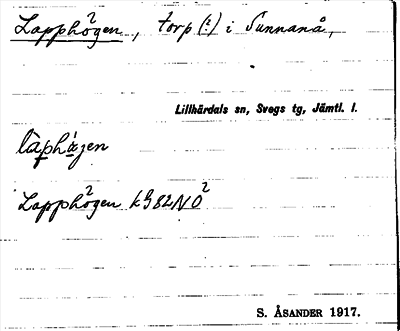 Lapphögen, torp (?) i Sunnanå,
Lillhärdals sn, Svegs tg, Jämtl. l.
Lapphögen kG82NO
S. ÅSANDER 1917.